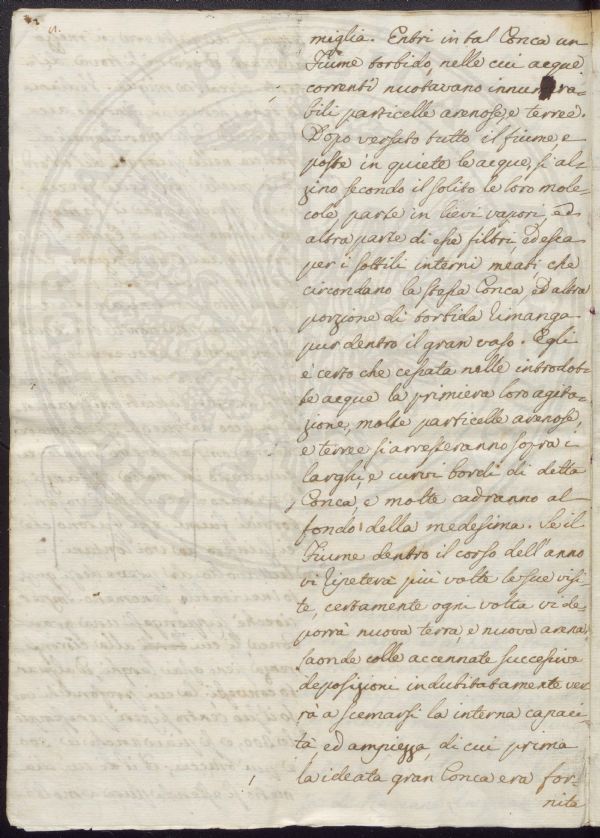 miglia. Entri in tal Conca un
Fiume torbido, nelle cui acque
correnti nuotavano innumera-
bili particelle arenose, e terree.
Dopo versato tutto il fiume, e
poste in quiete le acque, si al-
zino secondo il solito le loro mole-
cole, parte in lievi vapori, ed
altra parte di esse filtri, ed esca
per i sottili interni meati, che
circondano la stessa Conca, ed altra
porzione di torbida rimanga
pur dentro il gran vaso. Egli
è certo che cessata nelle introdot-
te acque la primiera loro agita-
zione, molte particelle arenose,
e terree si arresteranno sopra i
larghi, e curvi bordi di detta
Conca, e molte cadranno al
fondo della medesima. Se il
Fiume dentro il corso dell'anno
vi ripeterà più volte le sue visi-
te, certamente ogni volta vi de-
porrà nuova terra, e nuova arena,
laonde colle accennate successive
deposizioni indubitatamente ver-
rà a scemarsi la interna capaci-
tà ed ampiezza, di cui prima
la ideata gran Conca era for-
nita